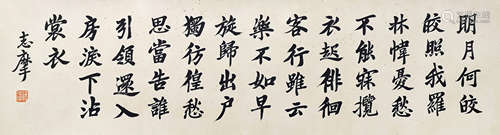 明月何皎
皎照我羅
牀幃憂愁
不能寐攬
衣起徘徊
客行雖云
樂不如早
旋歸出户
獨彷徨愁
思當告誰
引領還入
房淚下沾
裳衣
志摩